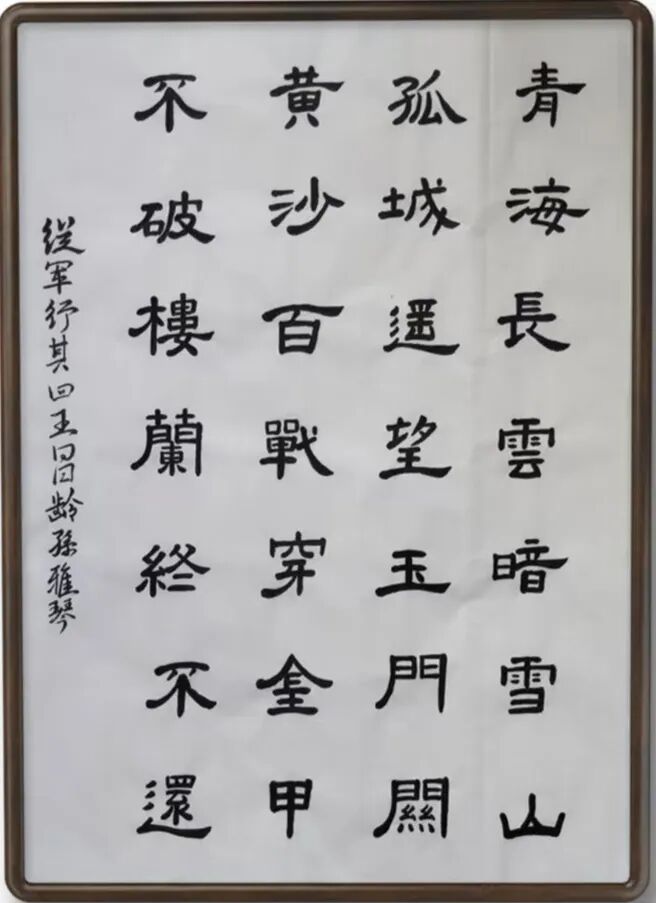 青海長雲暗雪山
孤城遥望玉門關
黄沙百戰穿金甲
不破樓蘭終不還
從軍行其四王昌齡孫雅琴